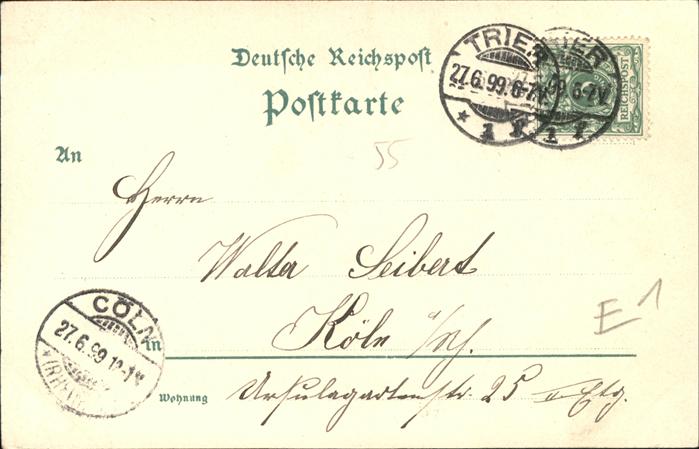 Deutsche Reichspost
Postkarte
TRIER
27.6.99.6-7V.
* 1 1
TRIER
99 6-7V.
1 1
REICHSPOST
55
An
Herrn
Walter Seibert
Köln a/Rh.
E 1
CÖLN
27.6.99.12-1
*(RHEIN
in
Wohnung
Ursulagartenstr. 25 Etg.